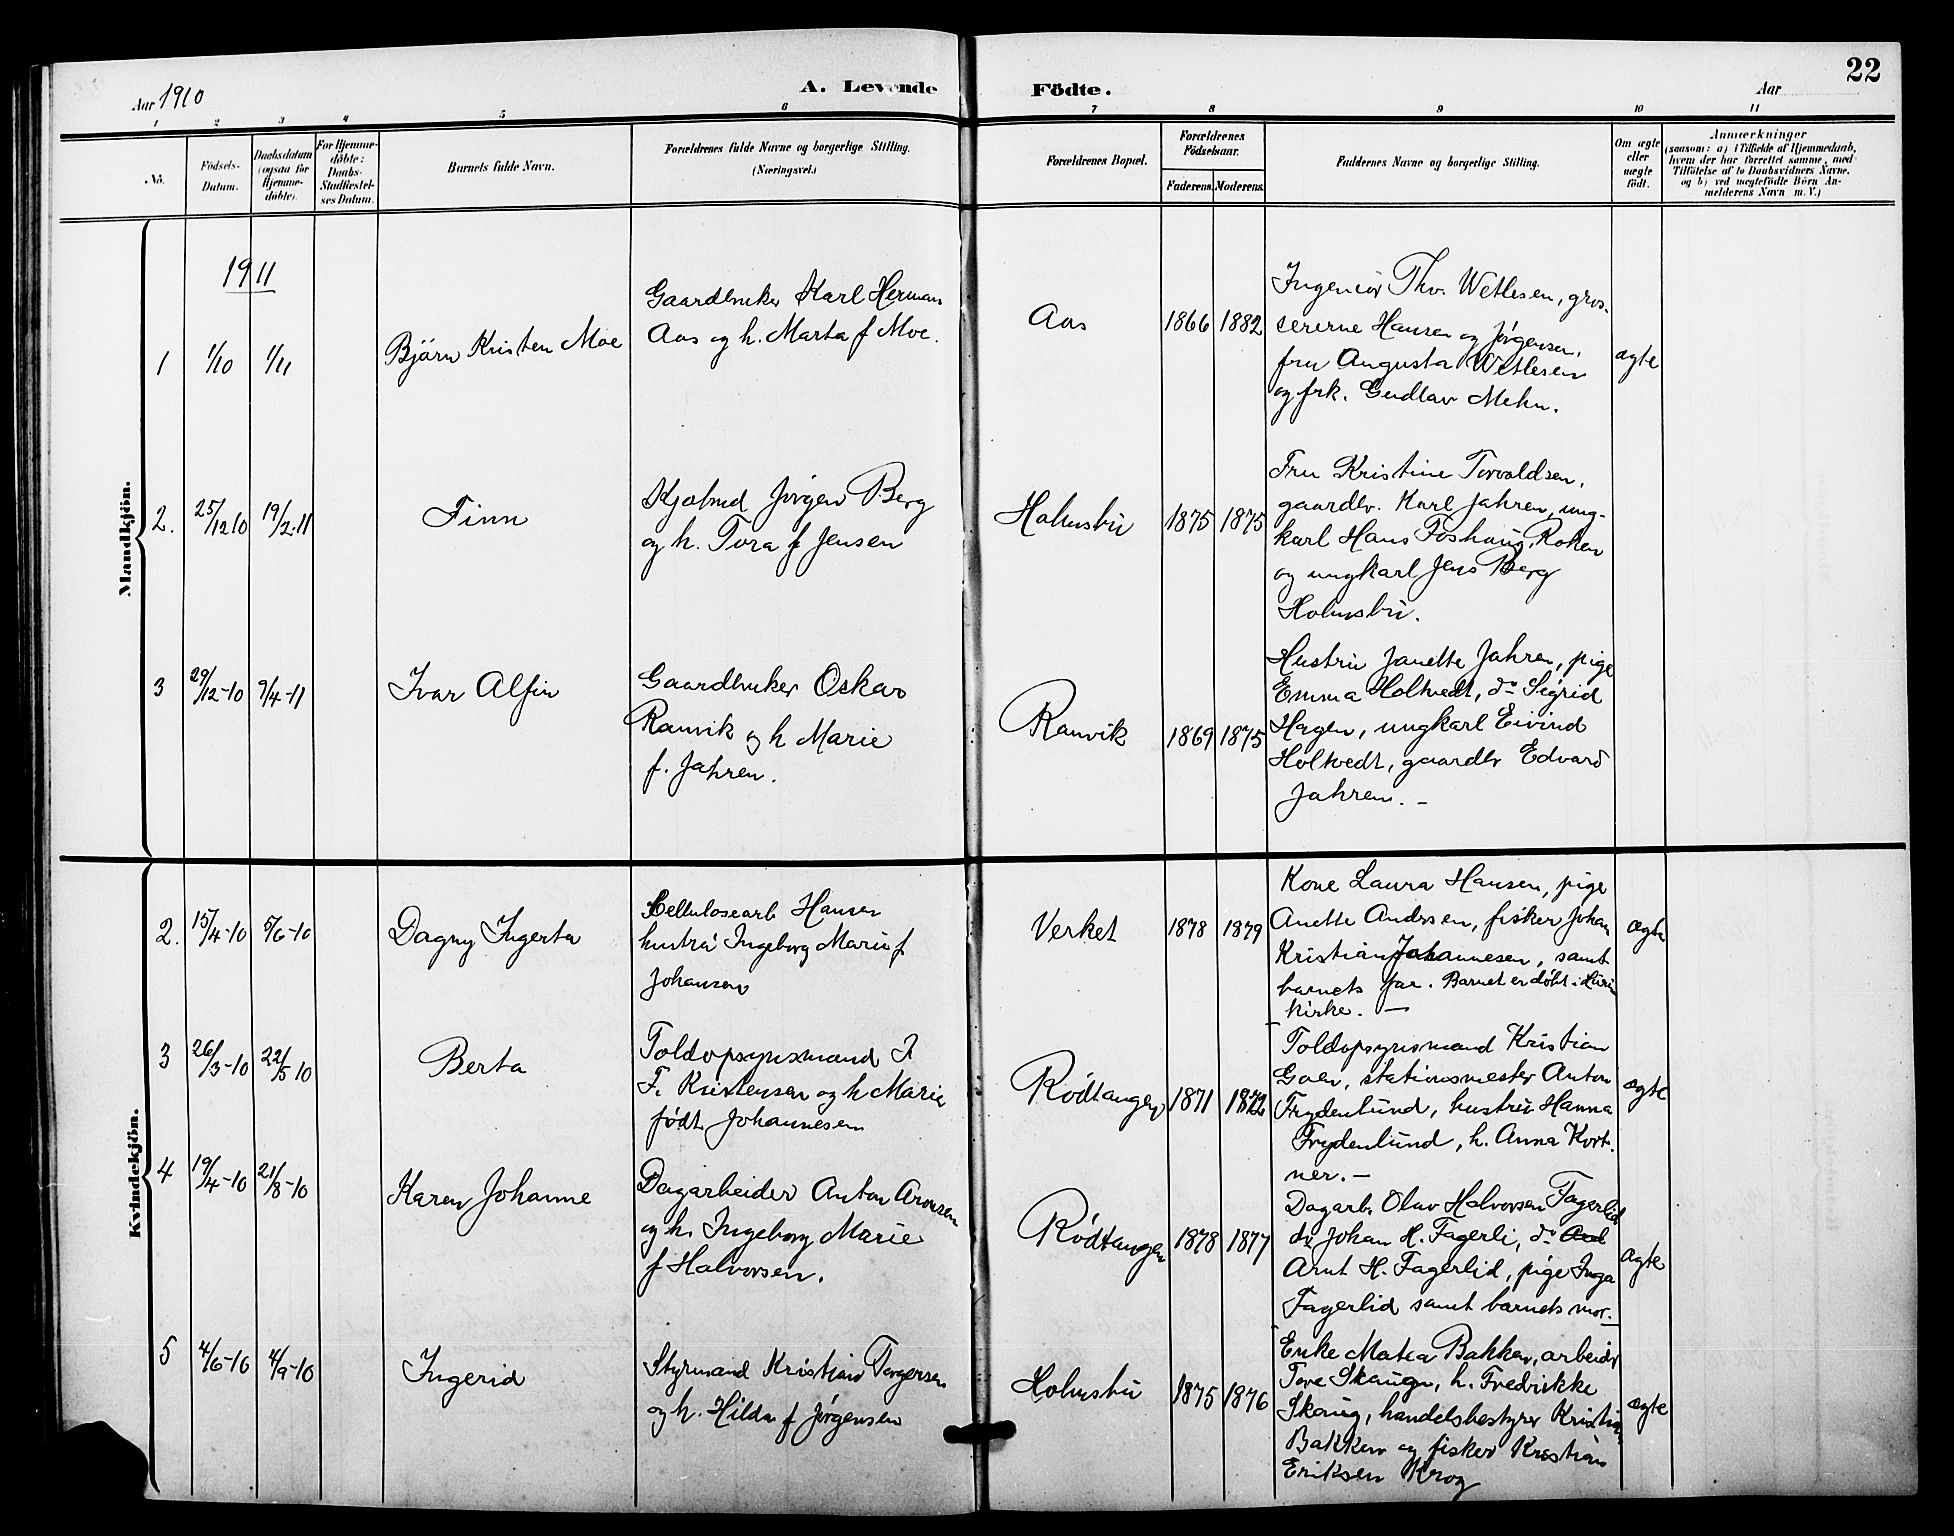 22
Aar 1910
A. Levende Födte.
Aar
1 2 3 4 5 6 7 8 9 10 11
No.
Födsels-
Datum.
Daabsdatum
(ogsaa for
Hjemme-
døbte).
For Hjemme-
døbte:
Daabs-
Stadfæstel-
ses Datum.
Barnets fulde Navn.
Forældrenes fulde Navne og borgerlige Stilling.
(Næringsvei.)
Forældrenes Bopæl.
Forældrenes
Födselsaar.
Faderens. Moderens.
Faddernes Navne og borgerlige Stilling.
Om ægte
eller
uægte
født.
Anmærkninger
(saasom: a) i Tilfælde af Hjemmedaab,
hvem der har forrettet samme, med
Tilføielse af to Daabsvidners Navne,
og b) ved uægtefödte Börn An-
melderens Navn m. V.)
Mandkjön.
1911
1 1/10 1/11
Björn Kristen Moe
Gaardbruker Karl Herman
Aas og h. Marta f Moe.
Aas
1866 1882
Ingeniör Thv. Wetlesen, gros-
sererne Hansen og Jørgensen,
fru Augusta Wetlesen
og frk. Gudlav Mehn.
ægte
2. 25/12 10 19/2-11
Finn
Jørgen Berg
og h. Tora f Jensen
Holmsbu
1875 1875
Fru Kristine Torvaldsen,
gaardbr. Karl Jahren, ung-
karl Hans Foshaug, Røken
og ungkarl Jens Berg
Holmsbu.
3 29/12-10 9/4-11
Ivar Alfin
Gaardbruker Oskar
Ranvik og h Marie
f. Jahren.
Ranvik
1869 1875
Hustru Janette Jahren, pige
Emma Holtvedt, do Sigrid
Hagen, ungkarl Eivind
Holtvedt, gaardbr Edvard
Jahren. –
Kvindekjön.
2. 15/4-10 5/6-10
Dagny Ingerta
Cellulosearb Hansen
hustru Ingeborg Marie f.
Johansen
Verket
1878 1879
Kone Laura Hansen, pige
Anette Andersen, fisker Johan
Kristian Johannesen, samt
barnets far. Barnet er døbt i Hurum
kirke. –
ægte
3 26/3-10 22/5 10
Berta
Toldopsynsmand J.
F. Kristensen og h Marie
født Johannesen
Rødtangen
1871 1872
Toldopsynsmand Kristian
Goen, stationsmester Anton
Frydenlund, hustru Hanna
Frydenlund, h. Anna Kort-
ner. –
ægte
4 19/4-10 21/8-10
Karen Johanne
Dagarbeider Anton Arnesen
og h. Ingeborg Marie
f Halvorsen.
Rødtangen
1878 1877
Dagarb. Olav Halvorsen Fagerlid
do Johan H. Fagerli, do
Arnt H. Fagerlid, pige Inga
Fagerlid samt barnets mor. –
ægte
5 4/6-10 4/9-10
Ingerid
Styrmand Kristian Torgersen
og h. Hilda f Jørgensen
Holmsbu
1875 1876
Enke Matea Bakken, arbeider
Tore Skaugn, h. Fredrikke
Skaug, handelsbestyrer Kristian
Bakken og fisker Kristian
Eriksen Krog
ægte